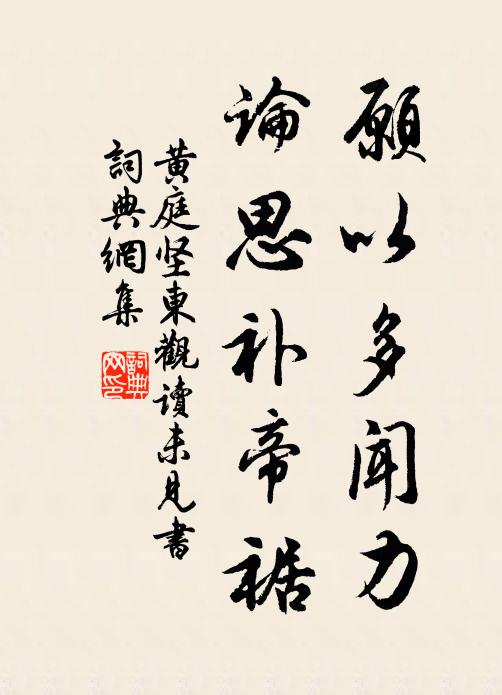 願以多聞力
論思补帝裾
黄庭坚東觀讀未見書
詞典網集
詞典網印